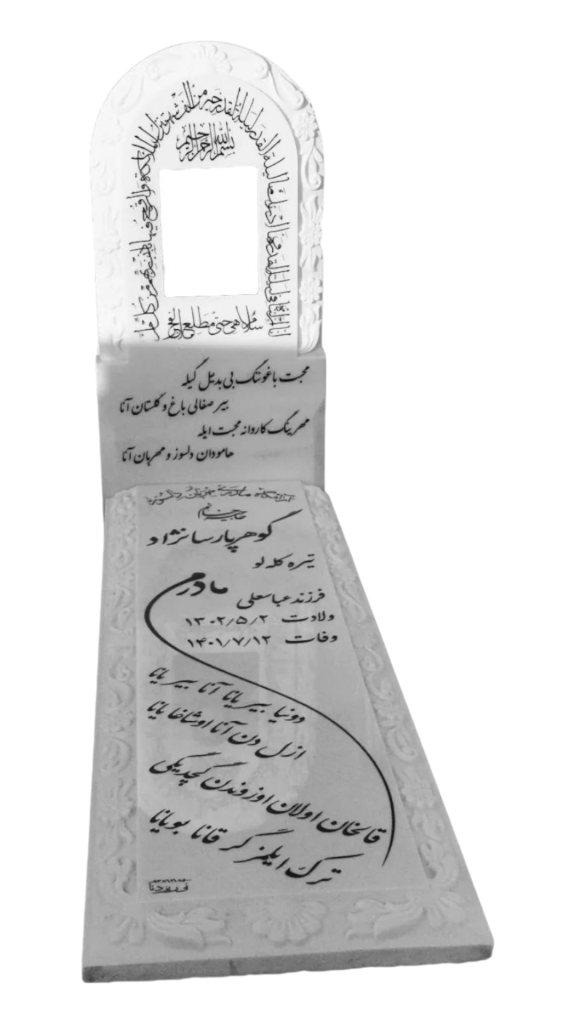 بسم الله الرحمن الرحیم
انا انزلناه فی لیلة القدر و ما ادریک ما لیلة القدر لیلة القدر خیر من الف شهر تنزل الملائکة و الروح فیها باذن ربهم من کل امر
سلام هی حتی مطلع الفجر
محبت باغوننگ بی بدیل گیله
بیر صفالی باغ و گلستان آنا
مهرینگ کاروانه محبت ایله
هامودان دلسوز و مهربان آنا
آرامگاه مادری مهربان و دلسوز
حاجیه خانم
گوهر پارسانژاد
تیره کله لو
فرزند عباسعلی
مادرم
ولادت ۱۳۰۲/۵/۲
وفات ۱۴۰۱/۷/۱۲
دونیا بیر یانا آنا بیر یانا
ازل دن آنا اوشاخا یانا
قالخان اولان اوزوندن گچدیکی
ترک ایلمز گر قانا بویانا